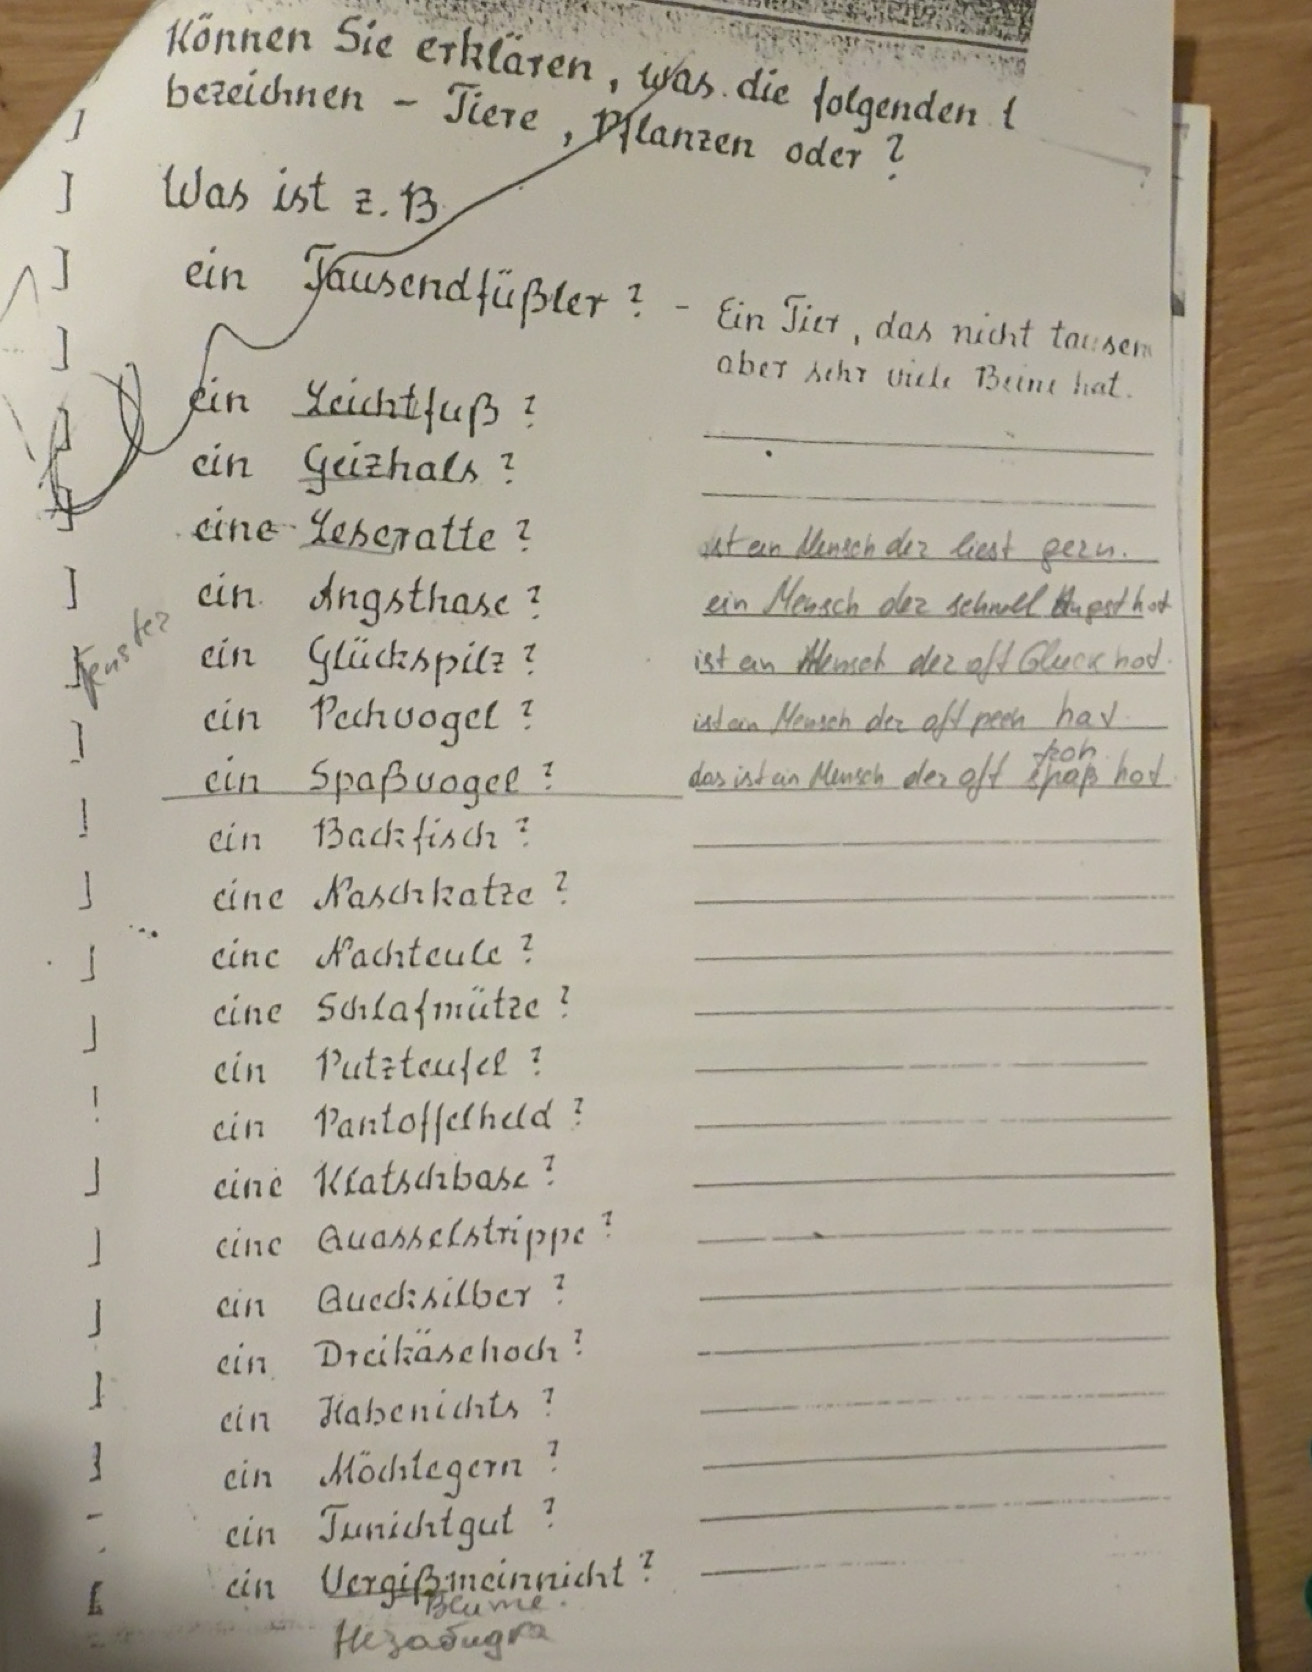 Können Sie erklären, was die folgenden
bezeichnen – Tiere, Pflanzen oder ?
Was ist z. B.
ein Tausendfüßler ? – Ein Tier, das nicht tausen
aber sehr viele Beine hat.
ein Leichtfuß ?
ein Geizhals ?
eine Leseratte ? ist ein Mensch der liest gern.
ein Angsthase ? ein Mensch der schnell Angst hat
Fenster
ein Glückspilz ? ist ein Mensch der oft Gluck hat.
ein Pechvogel ? ist ein Mensch der oft pech hat
froh
ein Spaßvogel ? das ist ein Mensch der oft spaß hat.
ein Backfisch ?
eine Naschkatze ?
eine Nachteule ?
eine Schlafmütze ?
ein Putzteufel ?
ein Pantoffelheld ?
eine Klatschbase ?
eine Quasselstrippe ?
ein Quecksilber ?
ein Dreikäsehoch ?
ein Habenichts ?
ein Möchtegern ?
ein Tunichtgut ?
ein Vergißmeinnicht ?
Blume.
Незабудка